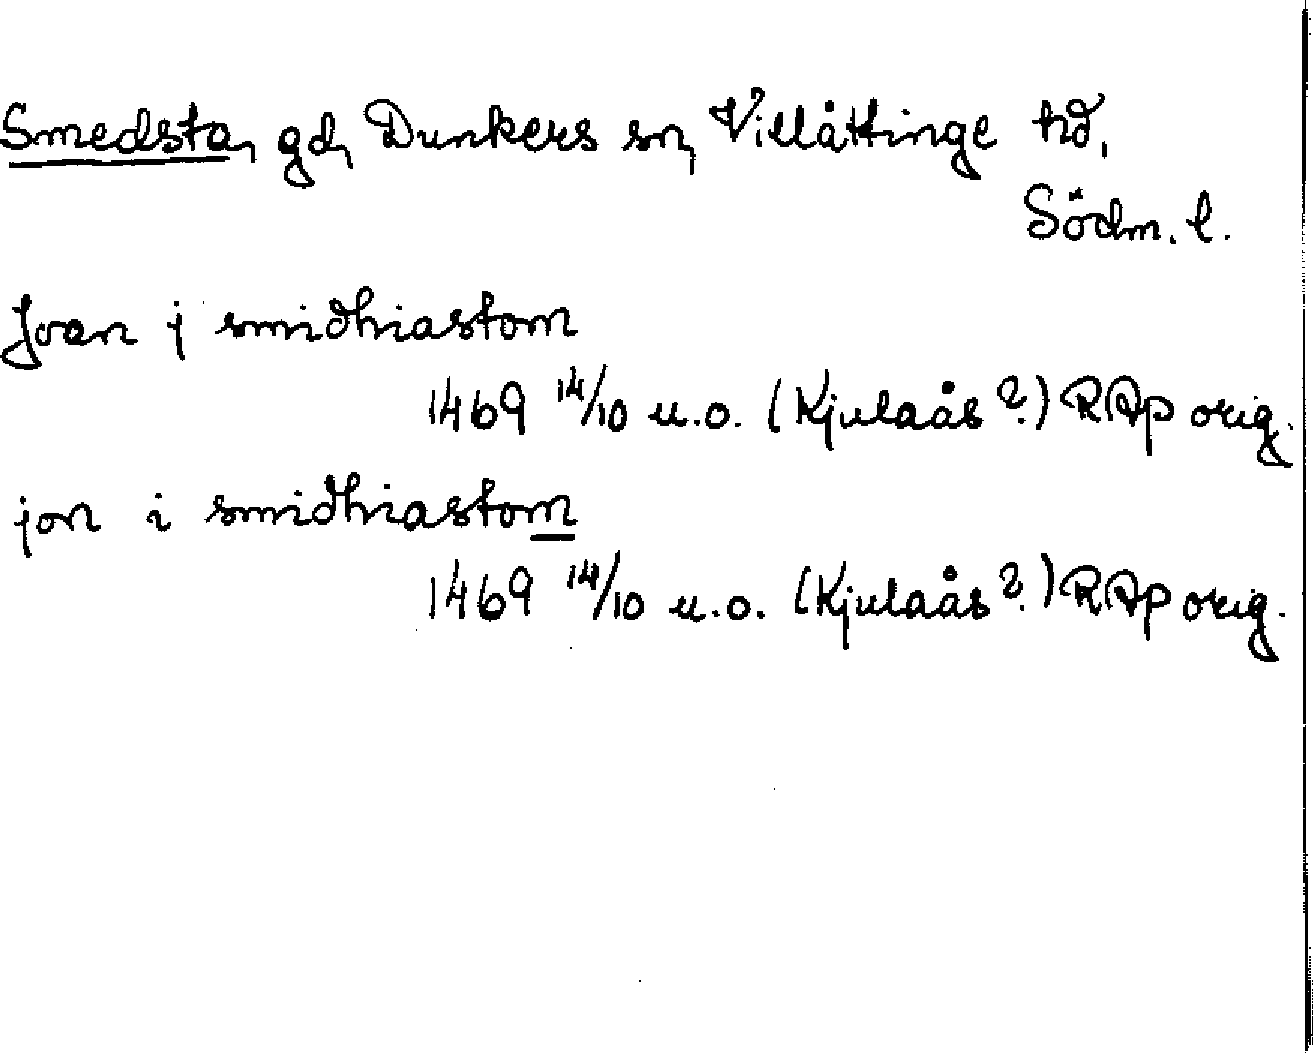 Smedsta, gd, Dunkers sn, Villåttinge hd,
Södm. l.
Joan j smidhiastom
1469 14/10 u.o. (Kjulaås?) RAp orig.
jon i smidhiastom
1469 14/10 u.o. (Kjulaås?) RAp orig.